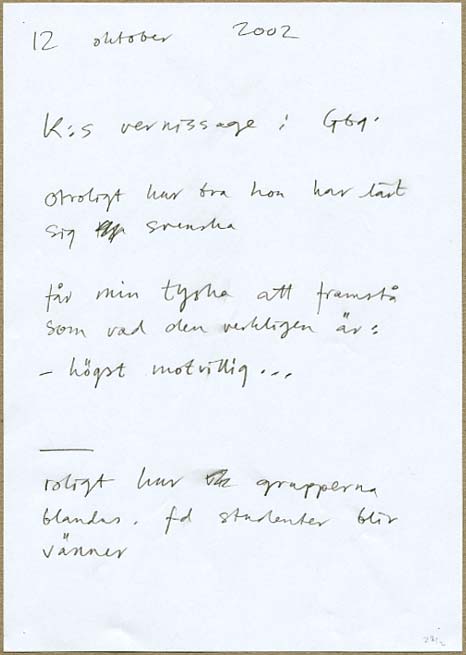 12 oktober 2002
K:s vernissage i Gbg.
otroligt hur bra hon har lärt
sig svenska
får min tyska att framstå
som vad den verkligen är:
– högst motvillig...
roligt hur grupperna
blandas. fd studenter blir
vänner